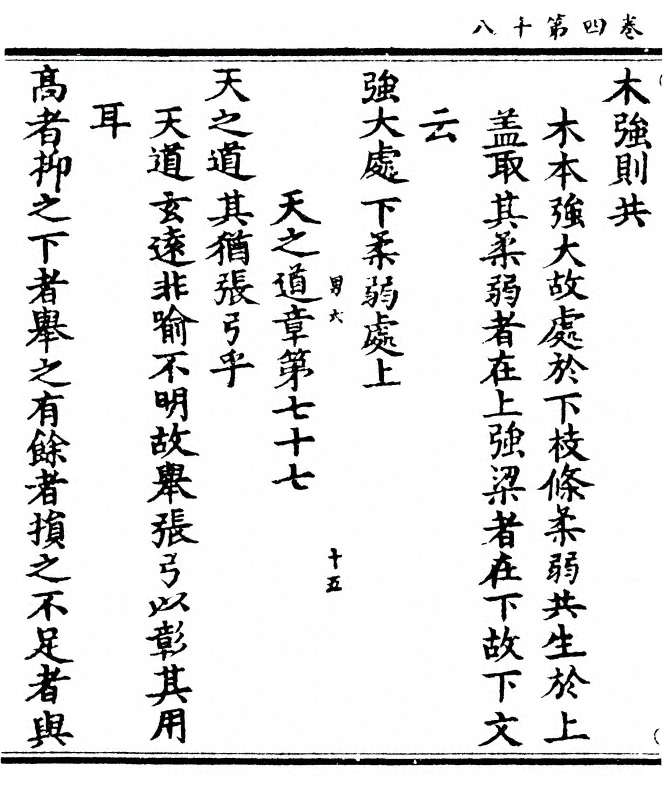 八十第四卷
木強則共
木本強大故處於下枝條柔弱共生於上
盖取其柔弱者在上強梁者在下故下文
云
強大處下柔弱處上
男六
十五
天之道章第七十七
天之道其猶張弓乎
天道玄遠非喻不明故舉張弓以彰其用
耳
高者抑之下者舉之有餘者損之不足者與